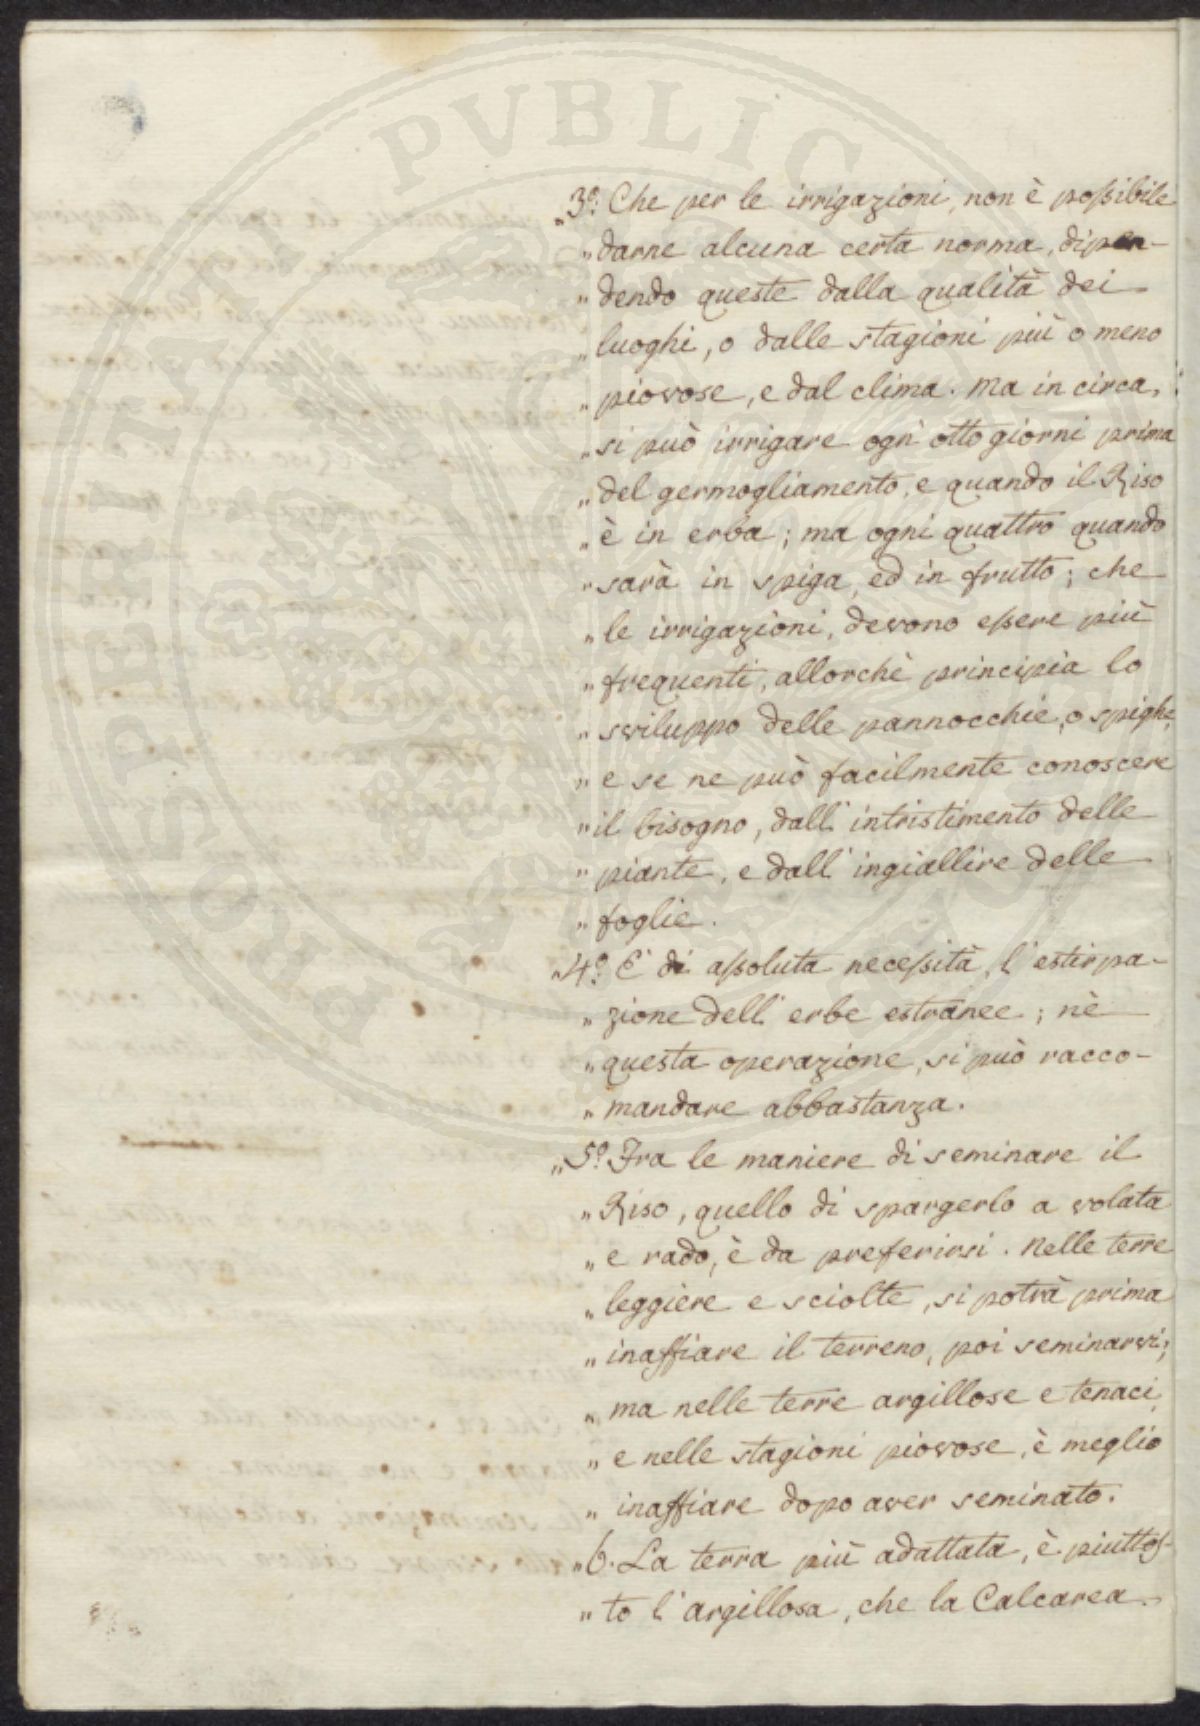 PROSPERITATI PVBLICAE
„3º. Che per le irrigazioni, non è possibile
„ darne alcuna certa norma, dipen-
„ dendo queste dalla qualità dei
„ luoghi, o dalle stagioni più o meno
„ piovose, e dal clima. Ma in circa,
„ si può irrigare ogni otto giorni prima
„ del germogliamento, e quando il Riso
„ è in erba; ma ogni quattro quando
„ sarà in spiga, ed in frutto; che
„ le irrigazioni, devono essere più
„ frequenti, allorchè principia lo
„ sviluppo delle pannocchie, o spighe,
„ e se ne può facilmente conoscere
„ il bisogno, dall'intristimento delle
„ piante, e dall'ingiallire delle
„ foglie.
„4º. E' di assoluta necessità, l'estirpa-
„ zione dell'erbe estranee; nè
„ questa operazione, si può racco-
„ mandare abbastanza.
„5º. Fra le maniere di seminare il
„ Riso, quello di spargerlo a volata
„ e rado, è da preferirsi. Nelle terre
„ leggiere e sciolte, si potrà prima
„ inaffiare il terreno, poi seminarvi;
„ ma nelle terre argillose e tenaci,
„ e nelle stagioni piovose, è meglio
„ inaffiare dopo aver seminato.
„6. La terra più adattata, è piuttos-
„ to l'argillosa, che la Calcarea.